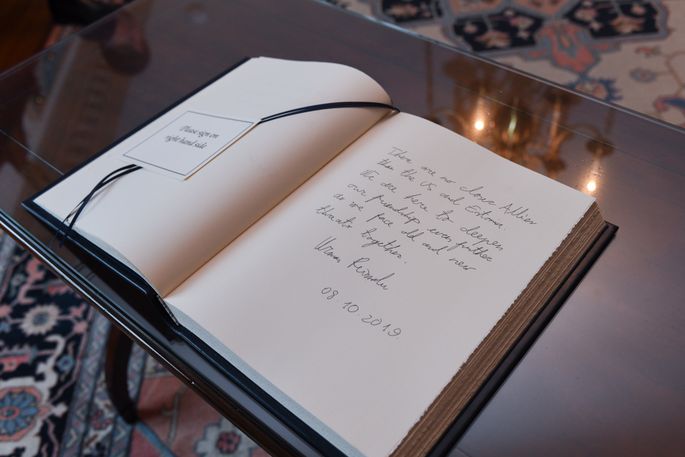 Please sign on
right hand side
There are no closer Allies
than the US and Estonia.
We are here to deepen
our friendship even further
as we face old and new
threats together.
Urmas Reinsalu
08.10.2019.